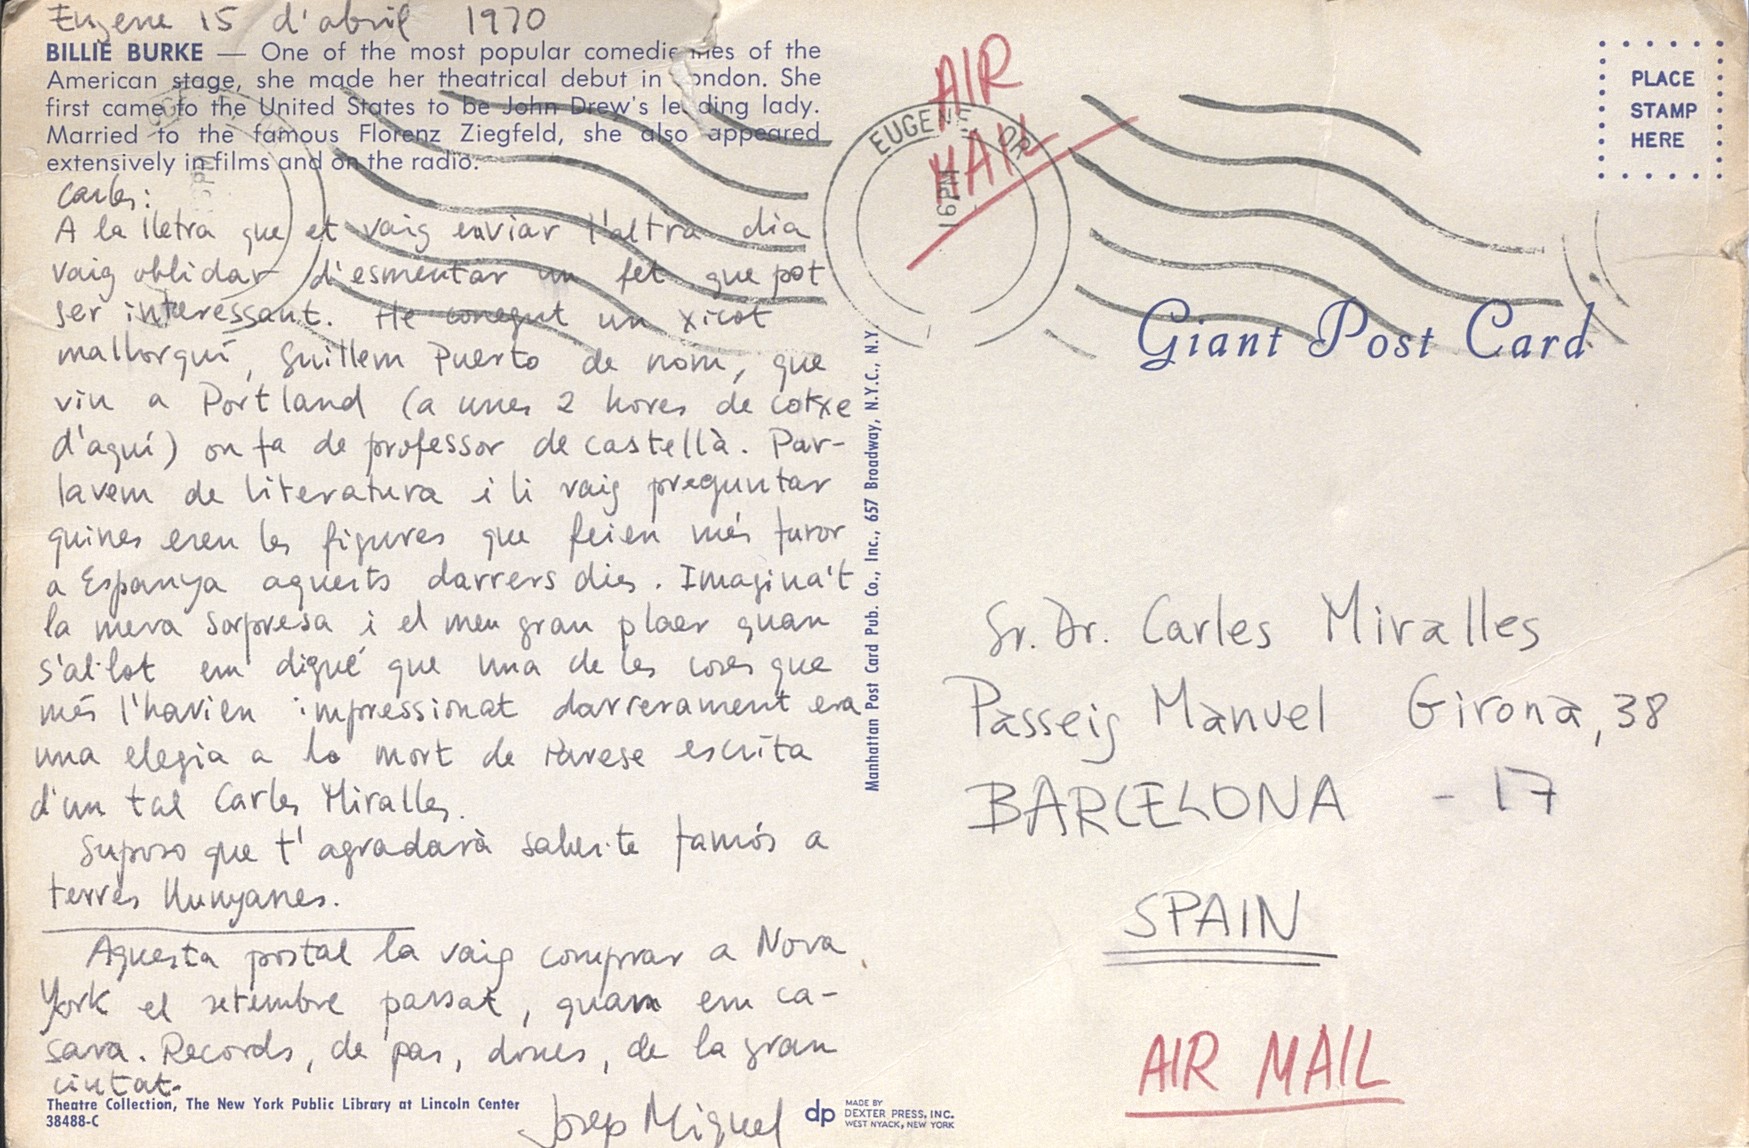 Eugene 15 d'abril 1970
BILLIE BURKE — One of the most popular comediennes of the
American stage, she made her theatrical debut in London. She
first came to the United States to be John Drew's leading lady.
Married to the famous Florenz Ziegfeld, she also appeared
extensively in films and on the radio.
Carles:
A la lletra que et vaig enviar l'altra dia
vaig oblidar d'esmentar un fet que pot
ser interessant. He conegut un xicot
mallorquí, Guillem Puerto de nom, que
viu a Portland (a unes 2 hores de cotxe
d'aquí) on fa de professor de castellà. Par-
lavem de literatura i li vaig preguntar
quines eren les figures que feien més furor
a Espanya aquests darrers dies. Imagina't
la meva sorpresa i el meu gran plaer quan
s'al·lot em digué que una de les coses que
més l'havien impressionat darrerament era
una elegia a la mort de Pavese escrita
d'un tal Carles Miralles.
Suposo que t'agradarà saber-te famós a
terres llunyanes.
Aquesta postal la vaig comprar a Nova
York el setembre passat, quan em ca-
sava. Records, de pas, doncs, de la gran
ciutat.
Josep Miquel
Theatre Collection, The New York Public Library at Lincoln Center
38488-C
dp MADE BY
DEXTER PRESS, INC.
WEST NYACK, NEW YORK
Manhattan Post Card Pub. Co., Inc., 657 Broadway, N.Y.C., N.Y.
AIR
MAIL
EUGENE, OR
PM
PLACE
STAMP
HERE
Giant Post Card
Sr. Dr. Carles Miralles
Passeig Manuel Girona, 38
BARCELONA - 17
SPAIN
AIR MAIL